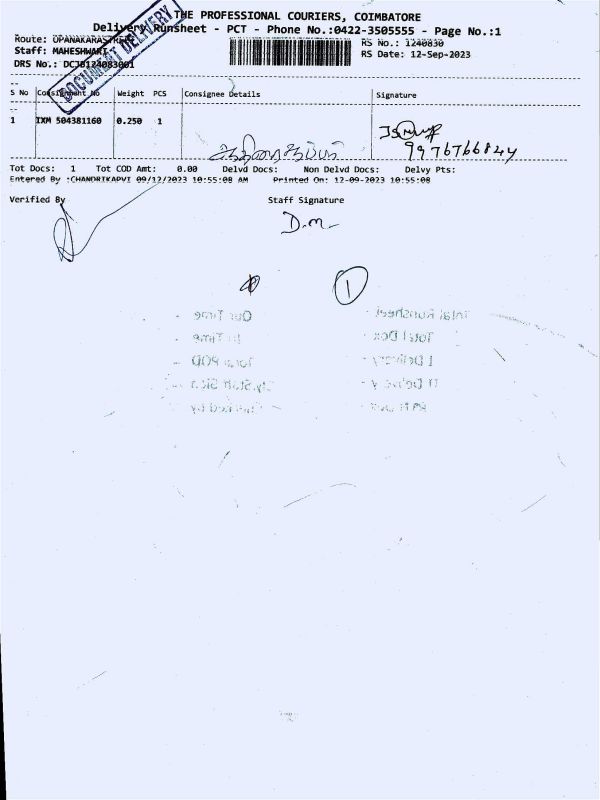 THE PROFESSIONAL COURIERS, COIMBATORE
Delivery Runsheet - PCT - Phone No.:0422-3505555 - Page No.:1
Route: OPANAKARASTREET RS No.: 1240830
Staff: MAHESHWARI RS Date: 12-Sep-2023
DRS No.: DCJ0124083001
DOCUMENT DELIVERY
S No Consignment No Weight PCS Consignee Details Signature
1 IXM 504381160 0.250 1
9976766824
Tot Docs: 1 Tot COD Amt: 0.00 Delvd Docs: Non Delvd Docs: Delvy Pts:
Entered By :CHANDRIKAPVT 09/12/2023 10:55:08 AM Printed On: 12-09-2023 10:55:08
Verified By Staff Signature
D.m.
1
Our Time - Total Runsheet -
In Time - Total Dox -
Total POD - I Delivery -
II Delivery -